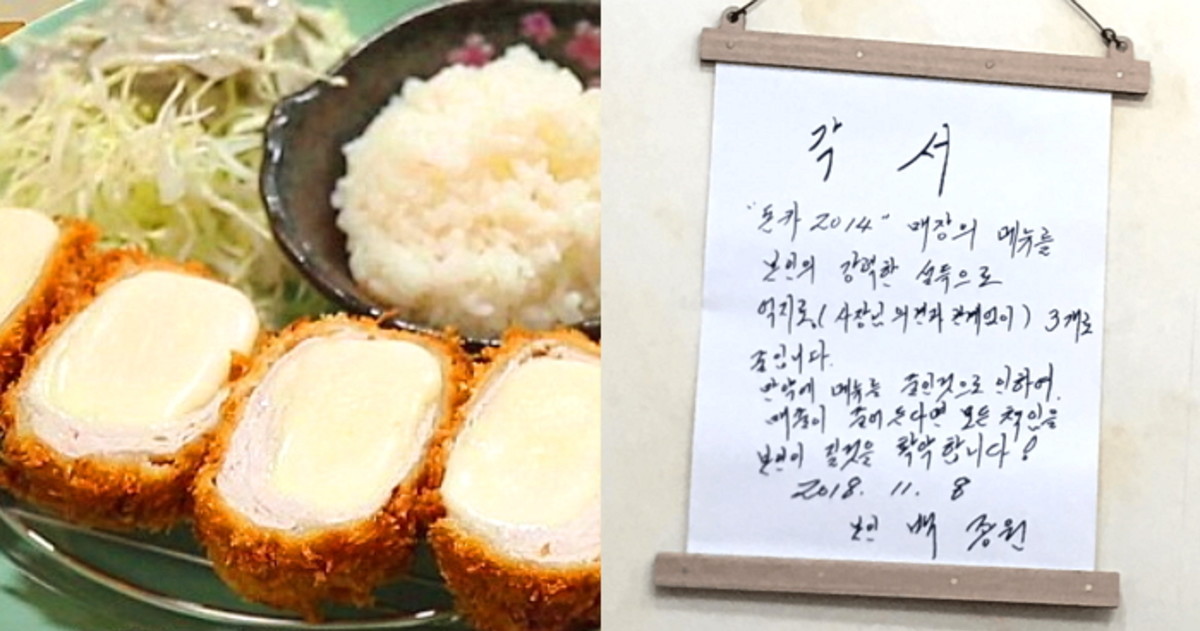 각 서
"돈카 2014" 매장의 메뉴를
본인의 강력한 설득으로
억지로(사장님 의견과 관계없이) 3개로
줄입니다.
만약에 메뉴를 줄인것으로 인하여
매출이 줄어든다면 모든 책임을
본인이 질것을 확약합니다!
2018. 11. 8
본인 백종원